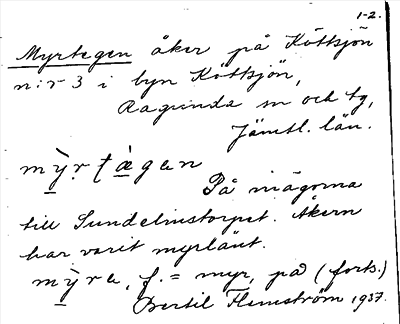 1-2.
Myrtegen åker på Köttsjön
n:r 3 i byn Köttsjön,
Ragunda sn och tg,
Jämtl. län.
mỳr t ὰ gen
På mågorna
till Sundelinstorpet. Åkern
har varit myrlänt.
mỳra, f. = myr, på (forts.)
Bertil Flemström 1937.